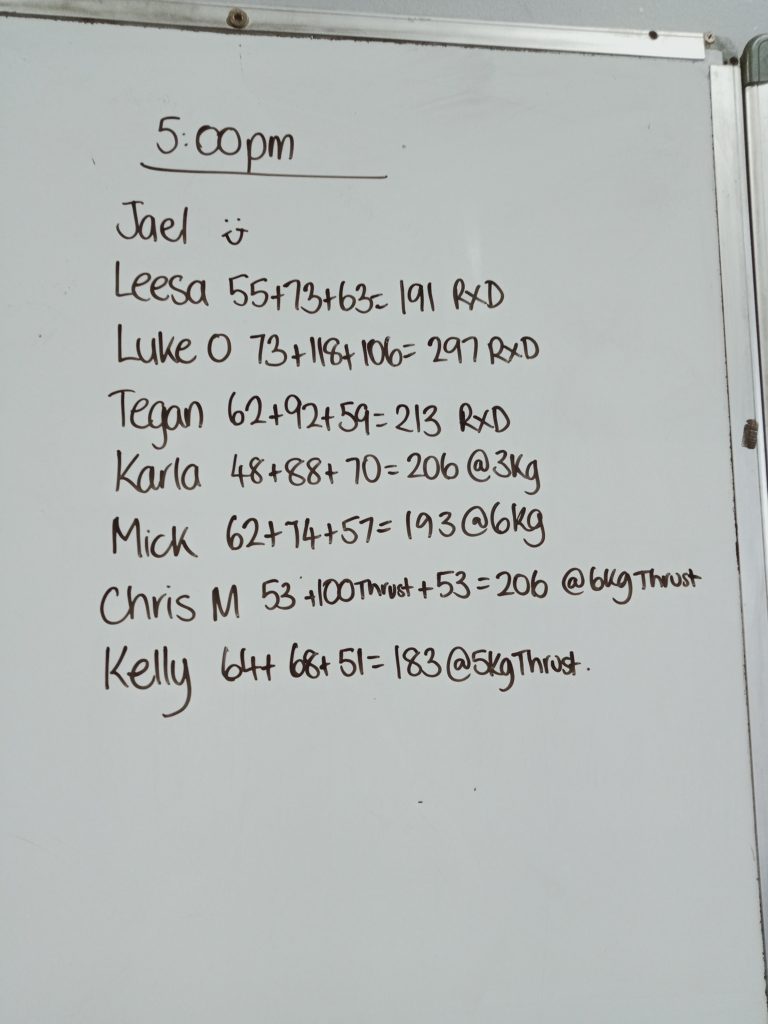 5:00pm
Jael ü
Leesa 55+73+63= 191 RXD
Luke O 73+118+106= 297 RXD
Tegan 62+92+59= 213 RXD
Karla 48+88+70= 206 @3Kg
Mick 62+74+57= 193 @6kg
Chris M 53 +100 Thrust + 53 = 206 @6kg Thrust
Kelly 64+ 68+ 51= 183 @5kg Thrust.